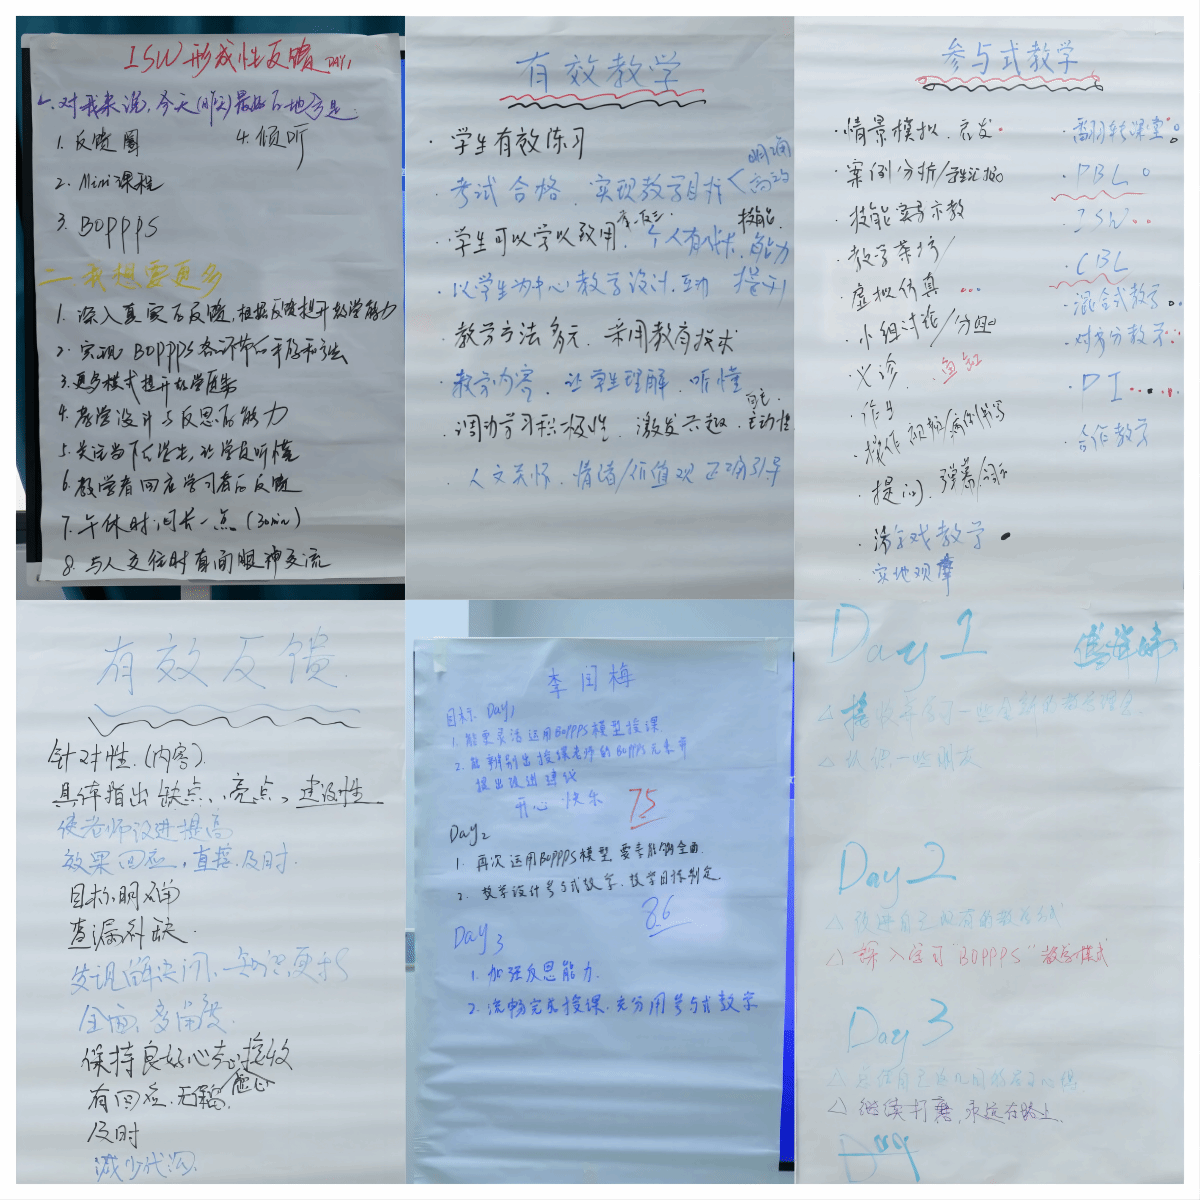 ISW形成性反馈 DAY1
一.对我来说,今天(昨天)最好的地方是
1. 反馈圈 4. 倾听
2. Mini课程
3. BOPPPS
二 我想要更多
1. 深入真实的反馈,根据反馈提升教学能力
2. 实现BOPPPS各环节的
3. 模式提升教学
4. 教学设计与反思的能力
5. 关注当下的学生,让学员听懂
6. 教学者回应学习者的反馈
7. 午休时间长一点 (30min)
8. 与人交往时有面眼神交流
有效教学
· 学生有效练习
· 考试合格、实现教学目标< 明确 高效
· 学生可以学以致用, 举一反三. 个人有成长. 技能 能力
· 以学生为中心教学设计,互动 提升
· 教学方法多元,采用教育技术
· 教学内容,让学生理解、听懂
· 调动学习积极性、激发兴趣、自主 主动性
· 人文关怀、情绪/价值观正确引导
参与式教学
· 情景模拟、启发
· 案例分析/学生汇报
· 技能 示教
· 教学 /
· 虚拟仿真
· 小组讨论/分组
· 义诊 · 鱼缸
· 作业
· 操作视频/病例书写
· 提问、弹幕/问卷
· 游戏教学
实地观摩
· 翻转课堂
· PBL
· ISW
· CBL
· 混合式教学
· 对分教学
· PI
· 合作教学
有效反馈
针对性.(内容).
具体指出缺点、亮点、建设性
使老师改进提高
效果回应,直接,及时.
目标明确
查漏补缺.
发现解决问、知识更
全面、多角度.
保持良好心态接收
有回应,无 . 虚心
及时
减少代沟.
李闰梅
目标: Day1
1. 能更灵活运用BOPPPS模型授课.
2. 能辨别出授课老师的BOPPPS元素并
提出改进建议
开心 快乐
75
Day2
1. 再次运用BOPPPS模型 要素能够全面.
2. 教学设计参与式教学、教学目标制定.
86
Day3
1. 加强反思能力.
2. 流畅完成授课,充分用参与式教学
Day 1
△ 接收并学习一些全新的教学理念
△ 认识一些朋友
Day 2
△ 改进自己原有的教学方式
△ 深入学习"BOPPPS"教学模式
Day 3
△ 总结自己这几日的 心得
△ 继续打磨,永远在路上.